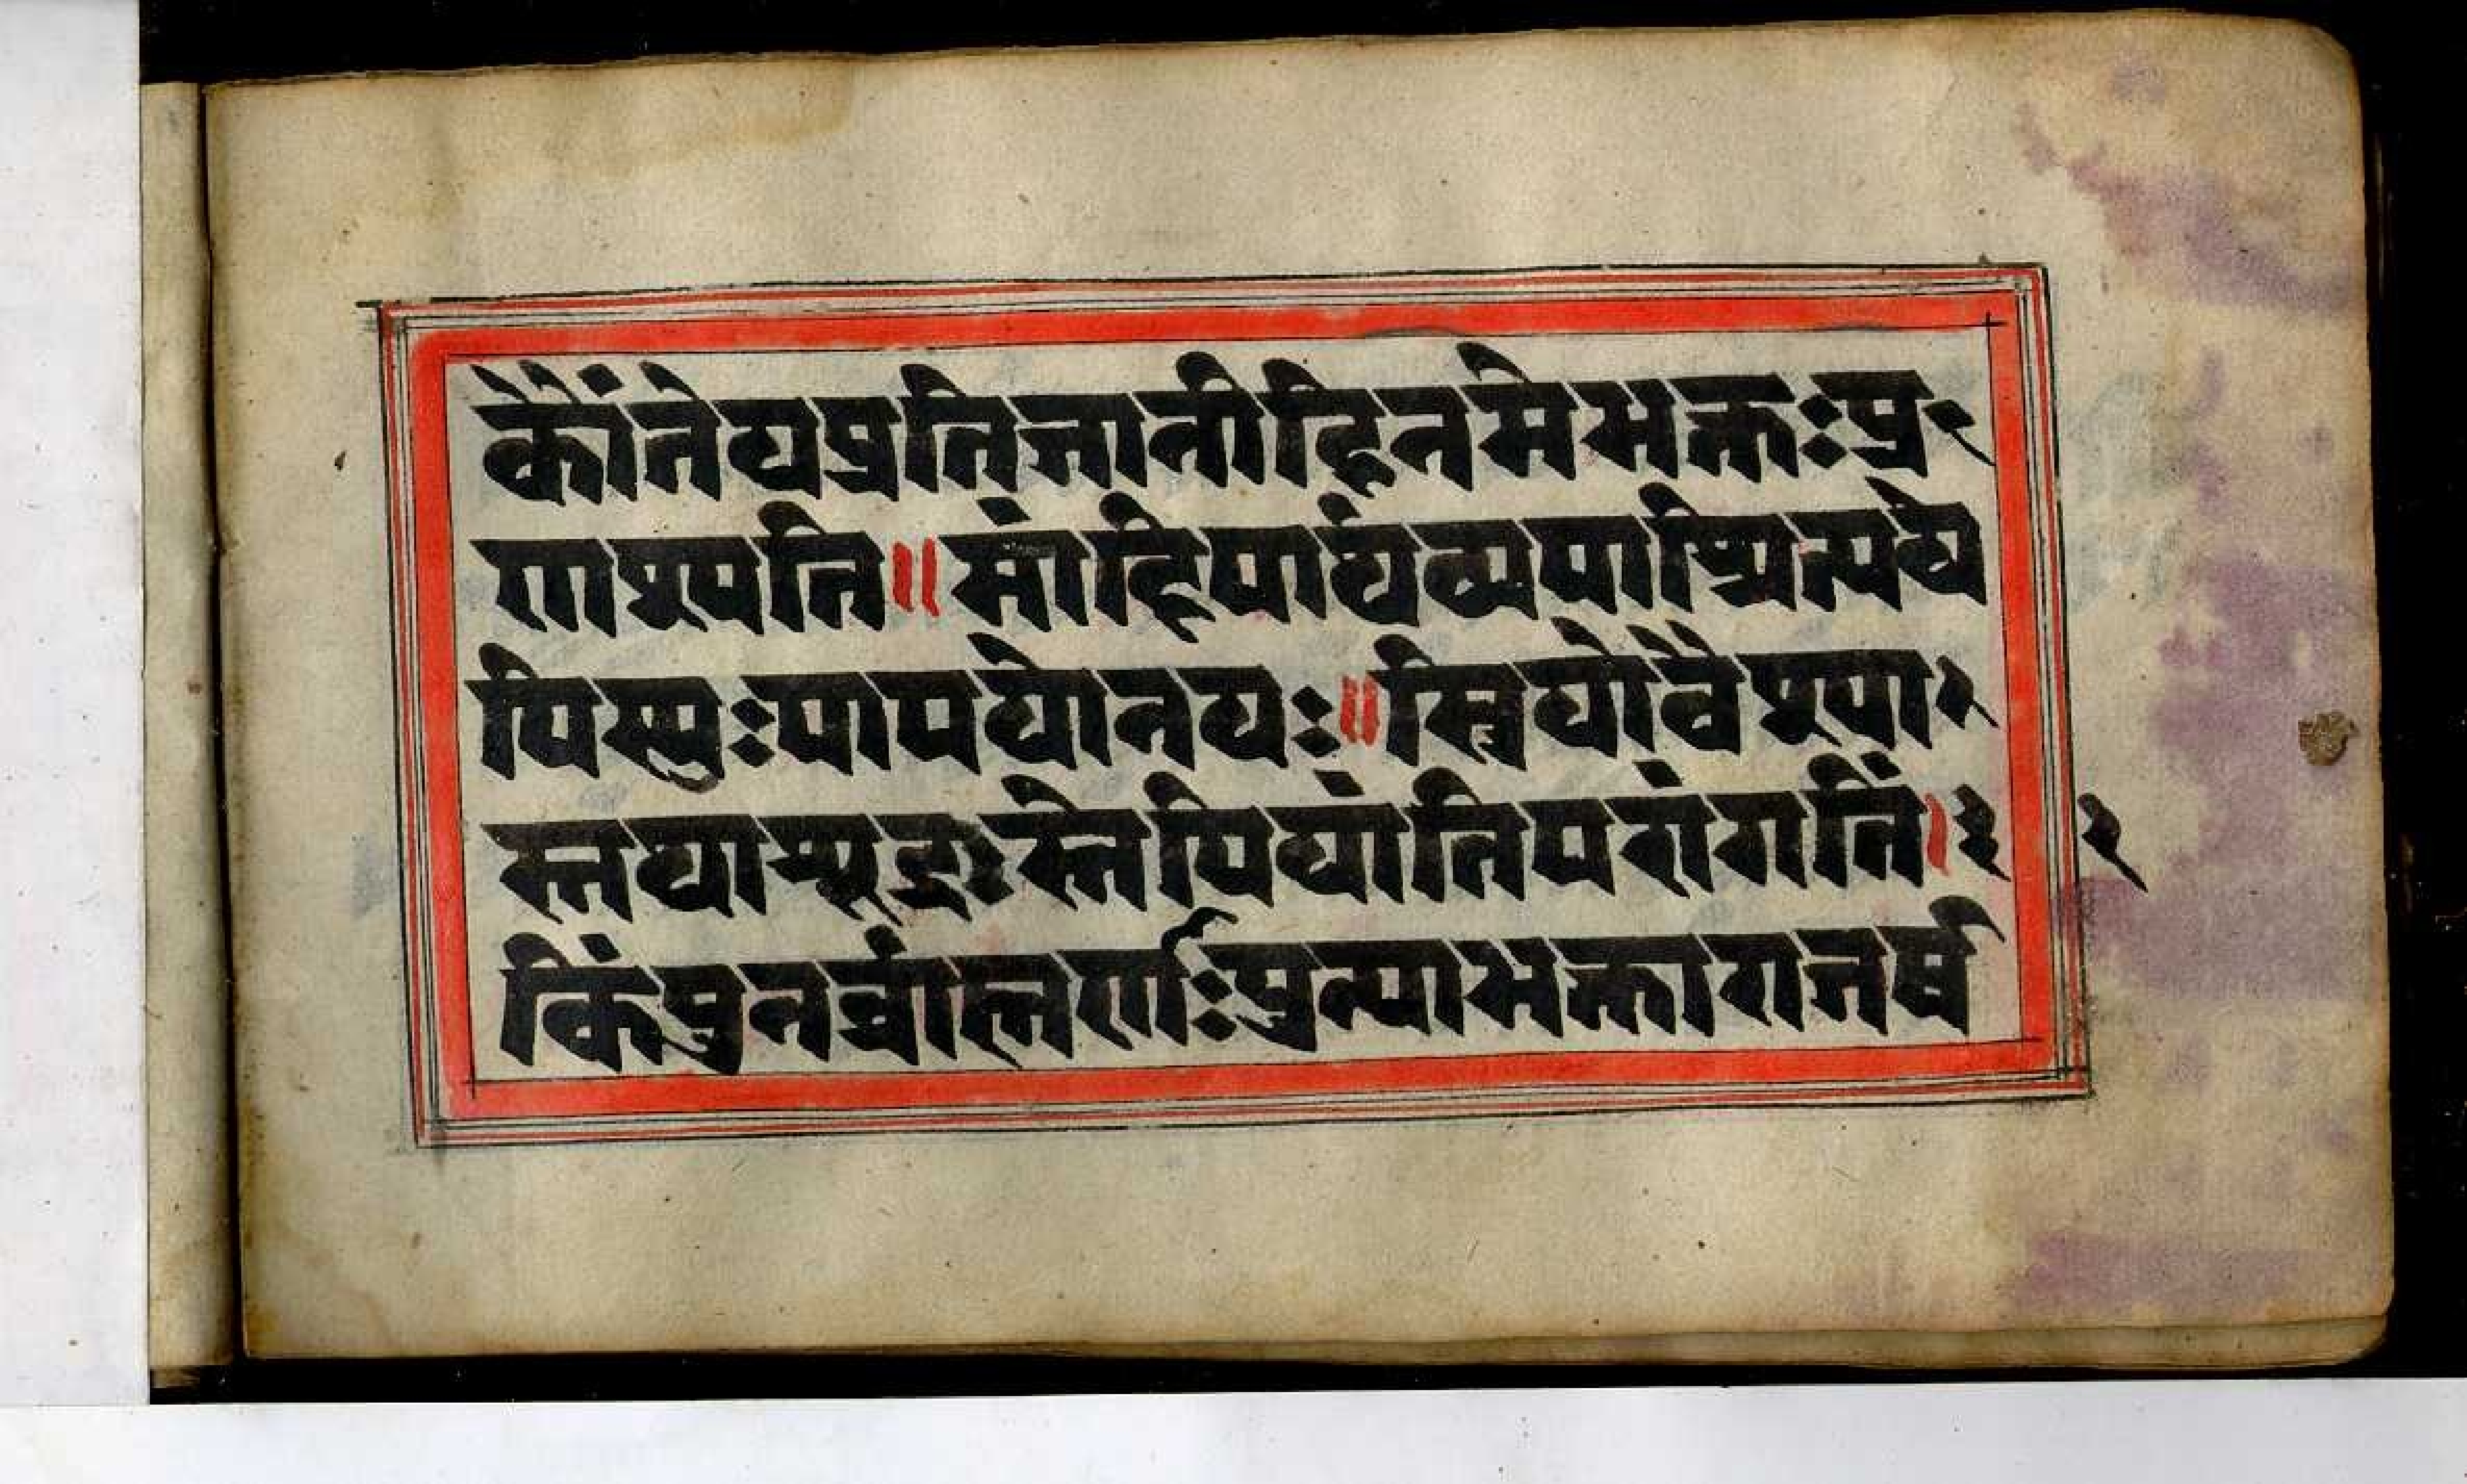 कौंतेयप्रतिजानीहिनमेभक्तःप्र-
णश्यति॥मांहिपार्थव्यपाश्रित्यये
पिस्युःपापयोनयः॥स्त्रियोवैश्या-
स्तथाशूद्रास्तेपियांतिपरांगतिं।३२
किंपुनर्ब्राह्मणाःपुण्याभक्ताराजर्ष